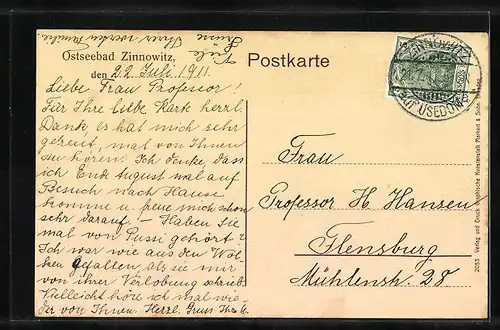 Viele
Grüsse Ihrer werten Familie
Ostseebad Zinnowitz,
den 22. Juli 1911.
Postkarte
Liebe Frau Professor!
Für Ihre liebe Karte herzl.
Dank, es hat mich sehr
gefreut, mal von Ihnen
zu hören. Ich denke, dass
ich Ende August mal auf
Besuch nach Hause
komme u. freue mich schon
sehr darauf. – Haben Sie
mal von Pussi gehört?
Ich war wie aus den Wol-
ken gefallen, als sie mir
von ihrer Verlobung schrieb.
Vielleicht höre ich mal wie-
der von Ihnen. Herzl. Gruss Ihre
ZINNOWITZ
USEDOM
Frau
Professor H. Hansen
Flensburg
Mühlenstr. 28
2053 Verlag und Druck